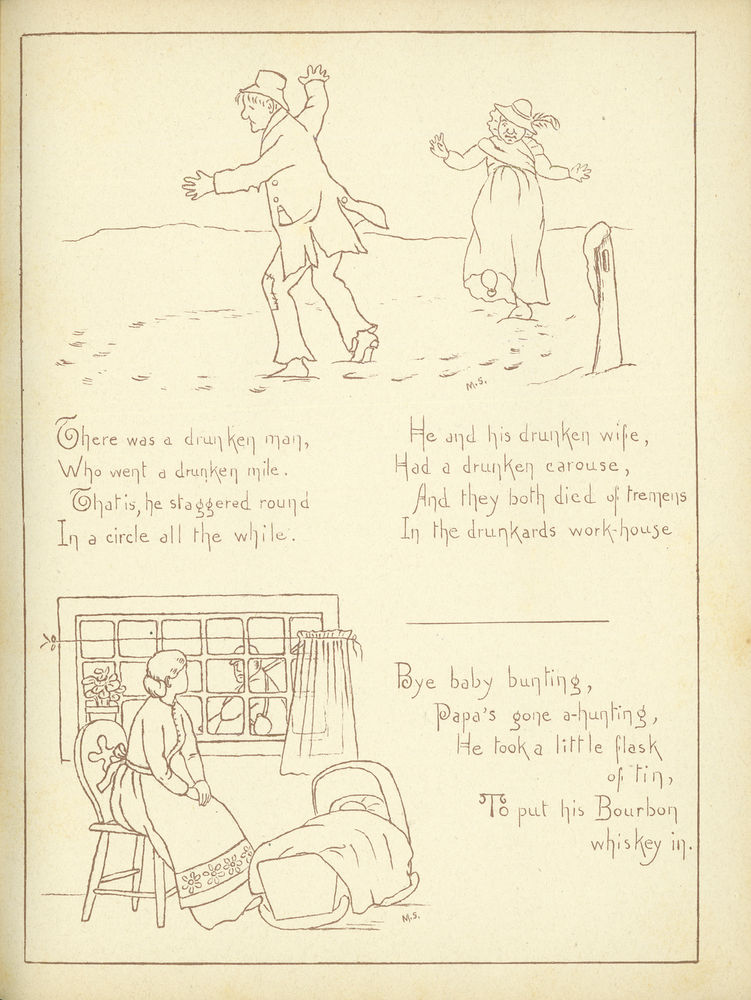 M.S.
There was a drunken man,
Who went a drunken mile.
That is, he staggered round
In a circle all the while.
He and his drunken wife,
Had a drunken carouse,
And they both died of tremens
In the drunkards work-house
Bye baby bunting,
Papa's gone a-hunting,
He took a little flask
of tin,
To put his Bourbon
whiskey in.
M.S.